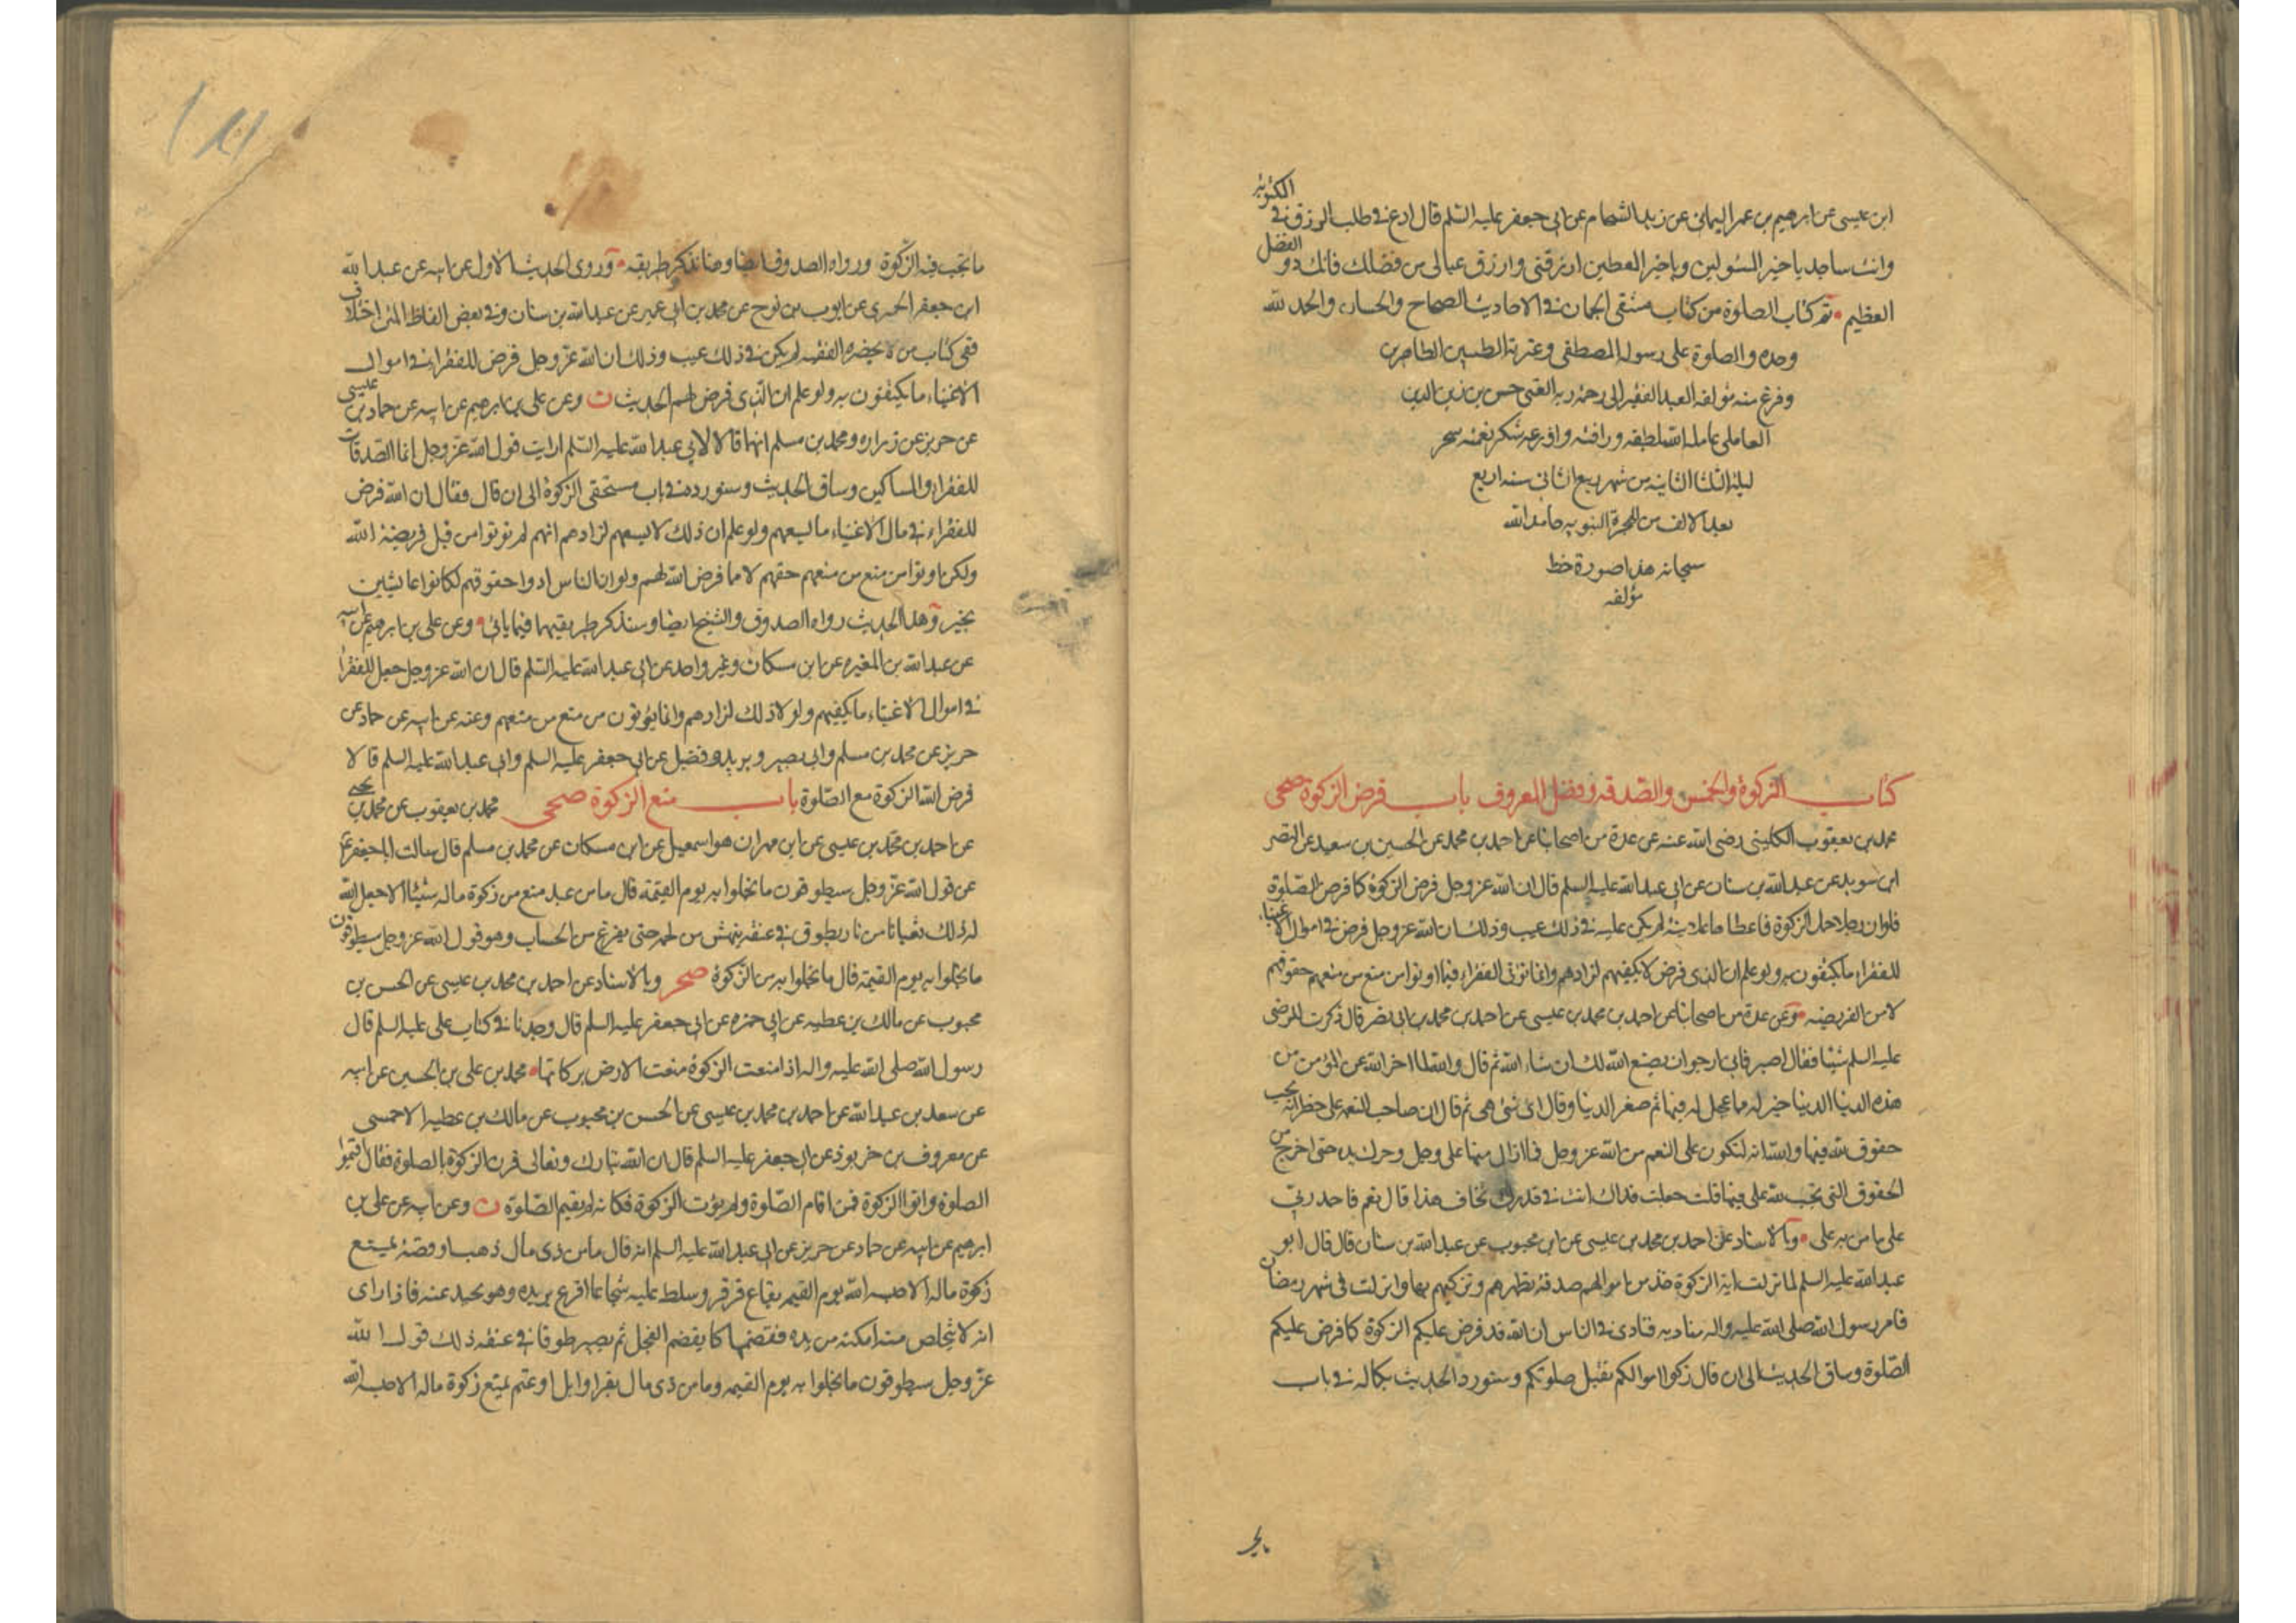 ابن عيسى عن ابرهيم بن عمر اليماني عن زيد الشحام عن ابي جعفر عليه السلم قال ادع في طلب الرزق في المكتوبة
وانت ساجد يا خير المسئولين ويا خير المعطين ارزقني وارزق عيالي من فضلك فانك ذو الفضل
العظيم تم كتاب الصلوة من كتاب منتقى الجمان في الاحاديث الصحاح والحسان والحمد لله
وحده والصلوة على رسوله المصطفى وعترته الطيبين الطاهرين
وفرغ منه مؤلفه العبد الفقير الى رحمة ربه الغني حسن بن زين الدين
العاملي عامله الله بلطفه ورافته واوزعه شكر نعمته سحر
ليلة الثلثا الثانية من شهر ربيع الثاني سنه اربع
بعد الالف من الهجرة النبويه حامدا لله
سبحانه هذا صورة خط
مؤلفه
كتاب الزكوة والخمس والصدقه وفضل المعروف باب فرض الزكوة صحي
محمد بن يعقوب الكليني رضي الله عنه عن عدة من اصحابنا عن احمد بن محمد عن الحسين بن سعيد عن النضر
ابن سويد عن عبد الله بن سنان عن ابي عبد الله عليه السلم قال ان الله عز وجل فرض الزكوة كما فرض الصلوة
فلو ان رجلا حمل الزكوة فاعطاها علانية لم يكن عليه في ذلك عيب وذلك ان الله عز وجل فرض في اموال الاغنياء
للفقراء ما يكتفون به ولو علم ان الذي فرض لا يكفيهم لزادهم وانما تؤتى الفقراء فيما اوتوا من منع من منعهم حقوقهم
لا من الفريضه وعن عدة من اصحابنا عن احمد بن محمد بن عيسى عن احمد بن محمد بن ابي نصر قال ذكرت للرضى
عليه السلم شيئا فقال اصبر فاني ارجو ان يصنع الله لك ان شاء الله ثم قال والله لما اخر الله عن المؤمن من
هذه الدنيا خير له مما عجل له فيها ثم صغر الدنيا وقال اي شئ هي ثم قال ان صاحب النعمه على خطر انه يجب
حقوق لله فيها والله انه لتكون على النعم من الله عز وجل فما ازال منها على وجل وحرك يده حتى اخرج من
الحقوق التي تجب لله علي فيها قلت جعلت فداك انت في قدرك تخاف هذا قال نعم فاحمد ربي
على ما من به علي وبالاسناد عن احمد بن محمد بن عيسى عن ابن محبوب عن عبد الله بن سنان قال قال ابو
عبد الله عليه السلم لما نزلت اية الزكوة خذ من اموالهم صدقة تطهرهم وتزكيهم بها وانزلت في شهر رمضان
فامر رسول الله صلى الله عليه واله مناديه فنادى في الناس ان الله قد فرض عليكم الزكوة كما فرض عليكم
الصلوة وساق الحديث الى ان قال زكوا اموالكم تقبل صلوتكم وسنورد الحديث بكماله في باب
ما تجب فيه الزكوة ورواه الصدوق ايضا وهنا نذكر طريقه وروى الحديث الاول عن ابيه عن عبد الله
ابن جعفر الحميري عن ايوب بن نوح عن محمد بن ابي عمير عن عبد الله بن سنان وفي بعض الفاظ المتن اختلاف
ففي كتاب من لا يحضره الفقيه لم يكن في ذلك عيب وذلك ان الله عز وجل فرض للفقراء في اموال
الاغنياء ما يكتفون به ولو علم ان الذي فرض لهم الحديث ن وعن علي بن ابرهيم عن ابيه عن حماد بن عيسى
عن حريز عن زراره ومحمد بن مسلم انهما قالا لابي عبد الله عليه السلم ارايت قول الله عز وجل انما الصدقات
للفقراء والمساكين وساق الحديث وسنورده في باب مستحقي الزكوة الى ان قال فقال ان الله فرض
للفقراء في مال الاغنياء ما يسعهم ولو علم ان ذلك لا يسعهم لزادهم انهم لم يؤتوا من قبل فريضة الله
ولكن اوتوا من منع من منعهم حقهم لا مما فرض الله لهم ولو ان الناس ادوا حقوقهم لكانوا عايشين
بخير وهذا الحديث رواه الصدوق والشيخ ايضا وسنذكر طريقيهما فيما ياتي وعن علي بن ابرهيم عن ابيه
عن عبد الله بن المغيره عن ابن مسكان وغير واحد عن ابي عبد الله عليه السلم قال ان الله عز وجل جعل للفقراء
في اموال الاغنياء ما يكفيهم ولولا ذلك لزادهم وانما يؤتون من منع من منعهم وعنه عن ابيه عن حماد عن
حريز عن محمد بن مسلم وابي بصير وبريد وفضيل عن ابي جعفر عليه السلم وابي عبد الله عليه السلم قالا
فرض الله الزكوة مع الصلوة باب منع الزكوة صحي محمد بن يعقوب عن محمد بن يحيى
عن احمد بن محمد بن عيسى عن ابن مهران هو اسمعيل عن ابن مسكان عن محمد بن مسلم قال سالت ابا جعفر ع
عن قول الله عز وجل سيطوقون ما بخلوا به يوم القيمة قال ما من عبد منع من زكوة ماله شيئا الا جعل الله
له ذلك ثعبانا من نار يطوق في عنقه ينهش من لحمه حتى يفرغ من الحساب وهو قول الله عز وجل سيطوقون
ما بخلوا به يوم القيمة قال ما بخلوا به من الزكوة صحر وبالاسناد عن احمد بن محمد بن عيسى عن الحسن بن
محبوب عن مالك بن عطيه عن ابي حمزه عن ابي جعفر عليه السلم قال وجدنا في كتاب علي عليه السلم قال
رسول الله صلى الله عليه واله اذا منعت الزكوة منعت الارض بركاتها محمد بن علي بن الحسين عن ابيه
عن سعد بن عبد الله عن احمد بن محمد بن عيسى عن الحسن بن محبوب عن مالك بن عطيه الاحمسي
عن معروف بن خربوذ عن ابي جعفر عليه السلم قال ان الله تبارك وتعالى قرن الزكوة بالصلوة فقال اقيموا
الصلوة واتوا الزكوة فمن اقام الصلوة ولم يؤت الزكوة فكانه لم يقيم الصلوة ن وعن ابيه عن علي بن
ابرهيم عن ابيه عن حماد عن حريز عن ابي عبد الله عليه السلم انه قال ما من ذي مال ذهب او فضة يمنع
زكوة ماله الا حبسه الله يوم القيمه بقاع قرقر وسلط عليه شجاعا اقرع يريده وهو يحيد عنه فاذا راى
انه لا يتخلص منه امكنه من يده فقضمها كما يقضم الفجل ثم يصير طوقا في عنقه ذلك قول الله
عز وجل سيطوقون ما بخلوا به يوم القيمه وما من ذي مال بقر او ابل او غنم يمنع زكوة ماله الا حبسه الله